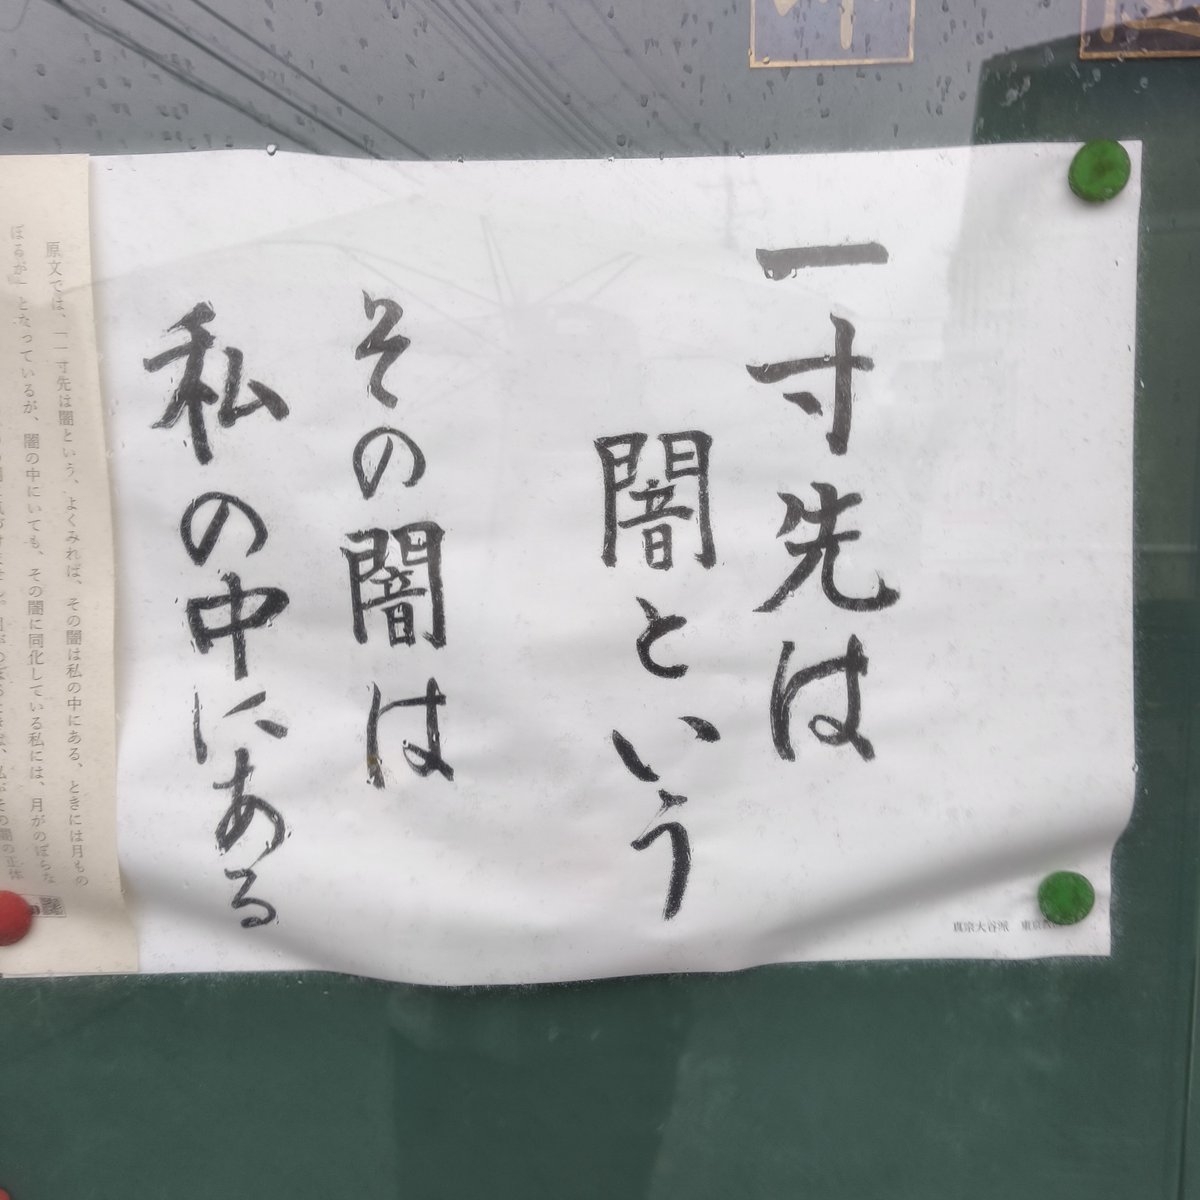 一寸先は
闇という
その闇は
私の中にある
真宗大谷派 東京
原文では、「一寸先は闇という、よくみれば、その闇は私の中にある、ときには月もの
ぼるが」となっているが、闇の中にいても、その闇に同化している私には、月がのぼらな